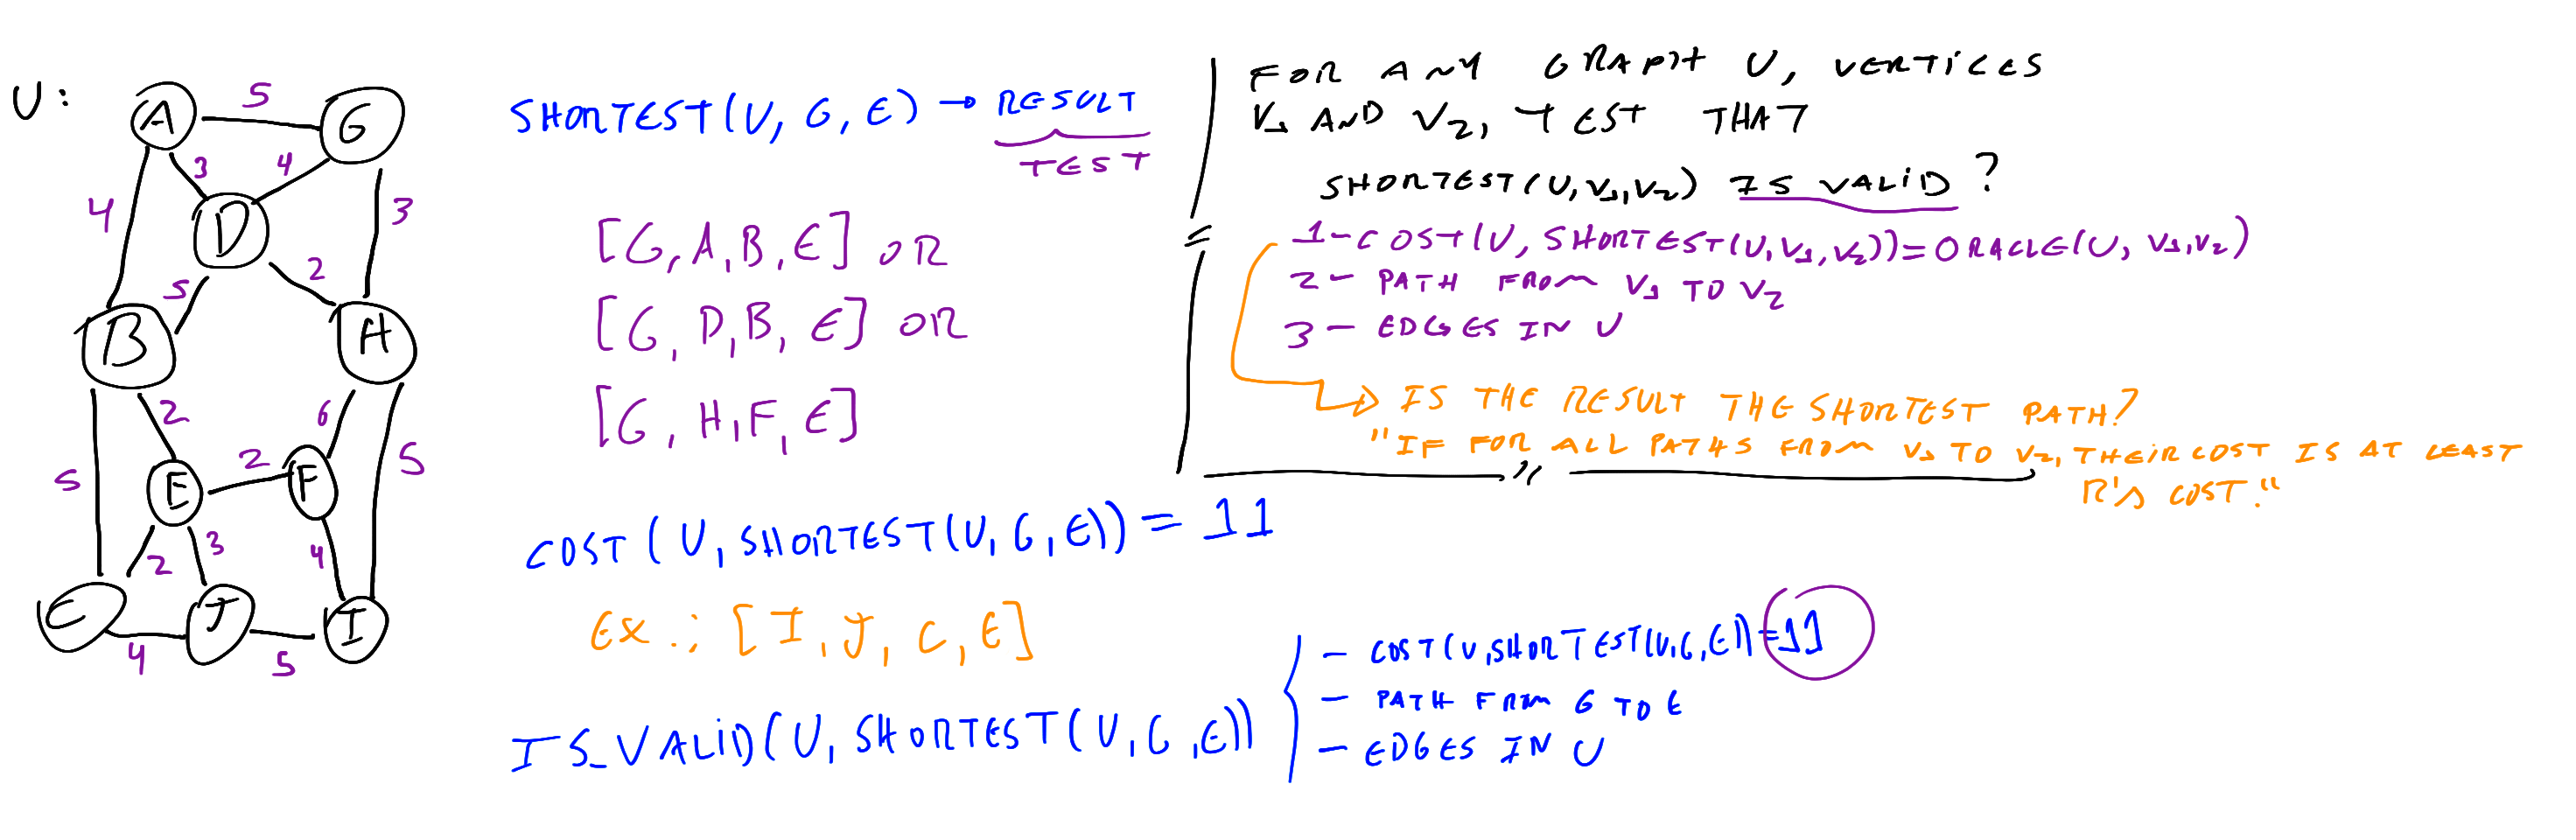 U:
A
5
G
3
4
4
D
3
5
2
B
H
2
6
5
5
E
2
F
2
3
4
C
J
I
4
5
SHORTEST(U, G, E) → RESULT
TEST
[G, A, B, E] OR
[G, D, B, E] OR
[G, H, F, E]
COST(U, SHORTEST(U, G, E)) = 11
EX.: [I, J, C, E]
IS_VALID(U, SHORTEST(U, G, E))
- COST(U, SHORTEST(U, G, E)) = 11
- PATH FROM G TO E
- EDGES IN U
FOR ANY GRAPH U, VERTICES
V1 AND V2, TEST THAT
SHORTEST(U, V1, V2) IS VALID?
1- COST(U, SHORTEST(U, V1, V2)) = ORACLE(U, V1, V2)
2- PATH FROM V1 TO V2
3- EDGES IN U
→ IS THE RESULT THE SHORTEST PATH?
"IF FOR ALL PATHS FROM V1 TO V2, THEIR COST IS AT LEAST
R'S COST."